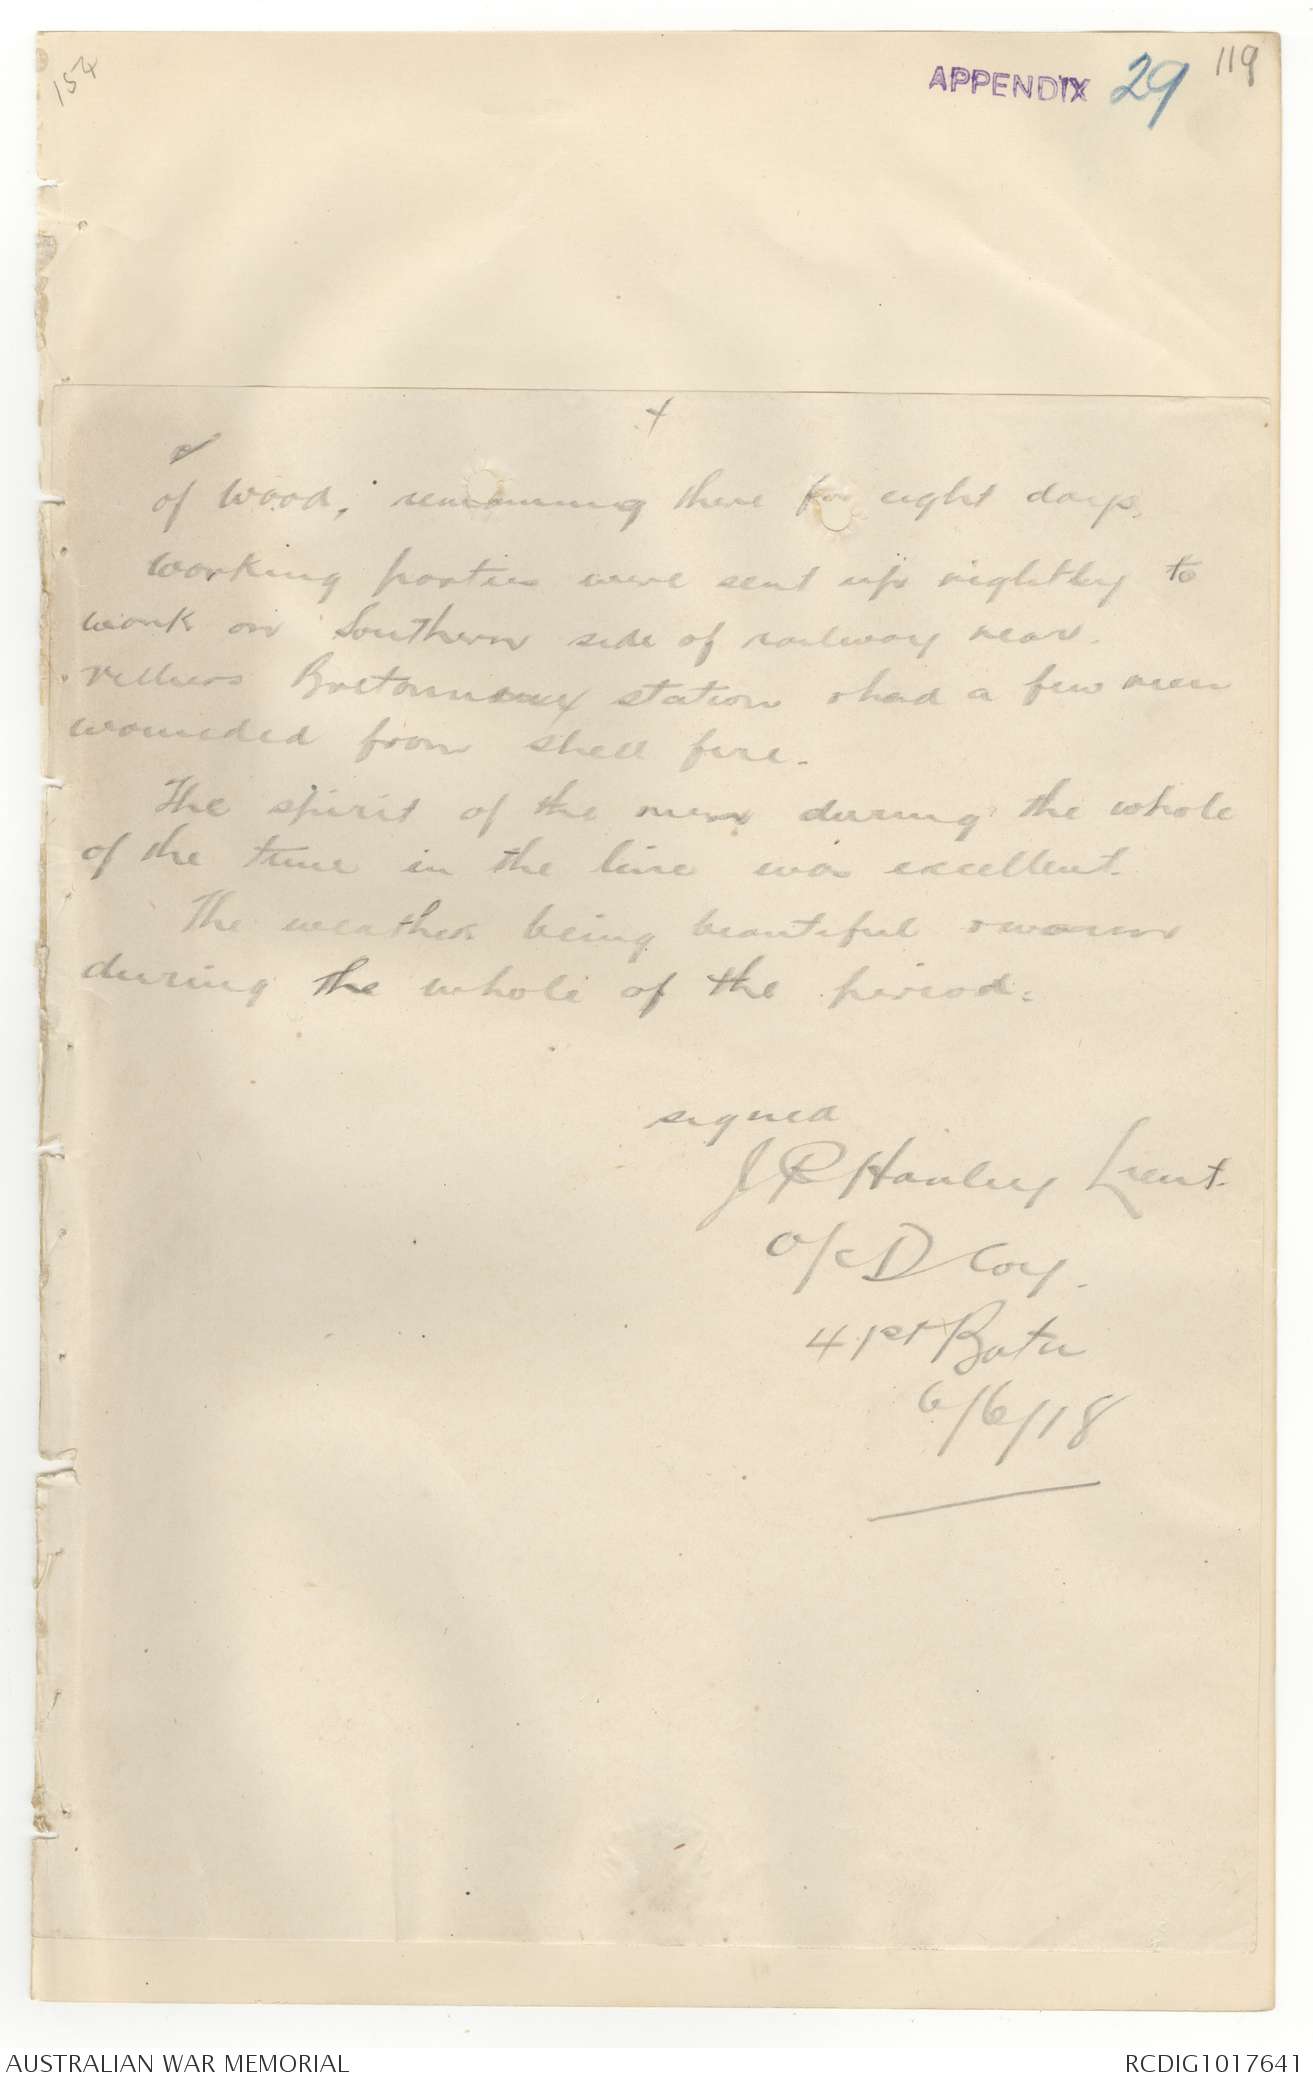 154
APPENDIX 29 119
of wood, remaining there for eight days.
Working parties were sent up nightly to
work on Southern side of railway near.
Villers Bretonneux station & had a few men
wounded from shell fire.
The spirit of the men during the whole
of the time in the line was excellent.
The weather being beautiful & warm
during the whole of the period.
signed
J R Hanley Lieut.
O/c D Coy.
41st Batn
6/6/18
AUSTRALIAN WAR MEMORIAL
RCDIG1017641